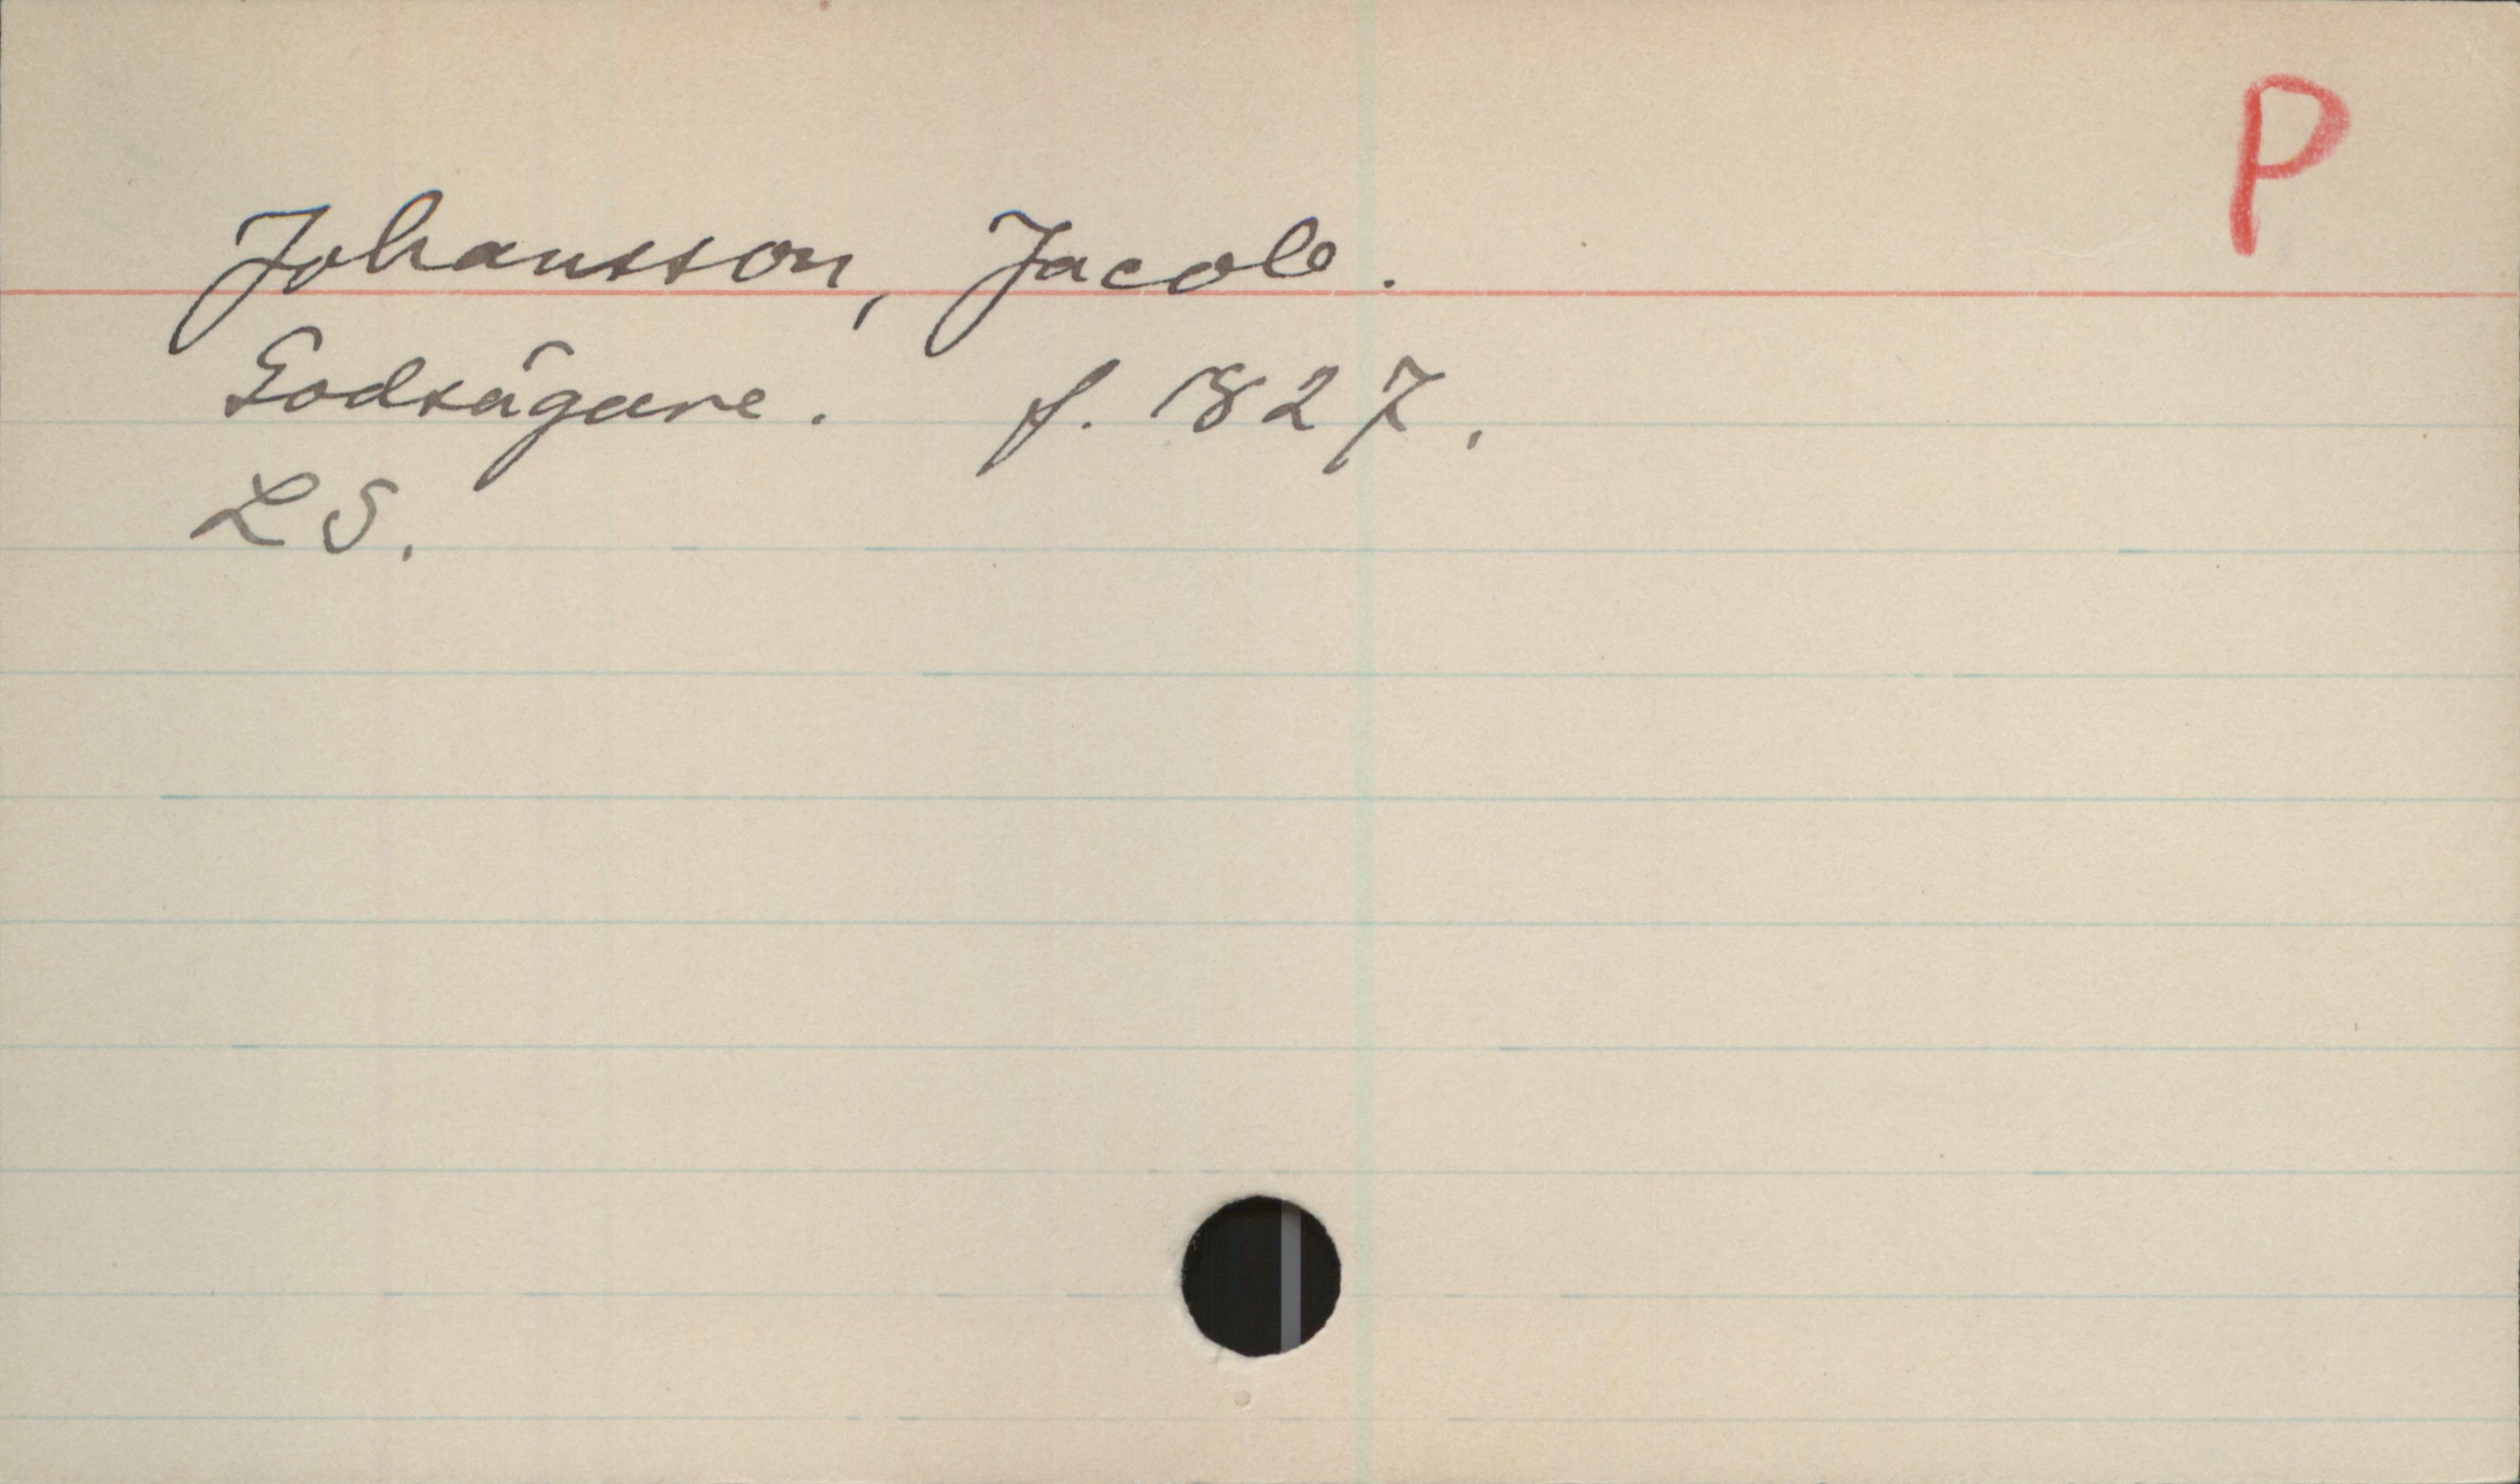 P
Johansson, Jacob.
Godsägare. f. 1827.
LS.